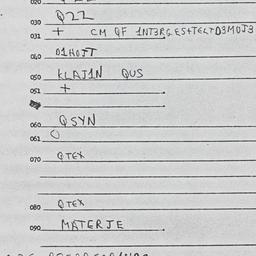 030 QZZ
031 + CM QF 1NT3RGES+TELTD3MOJ3
040 01HOJT
050 KLAJ1N QUS
051 +
060 QSYN
061 O
070 QTEX
080 QTEX
090 MATERJE